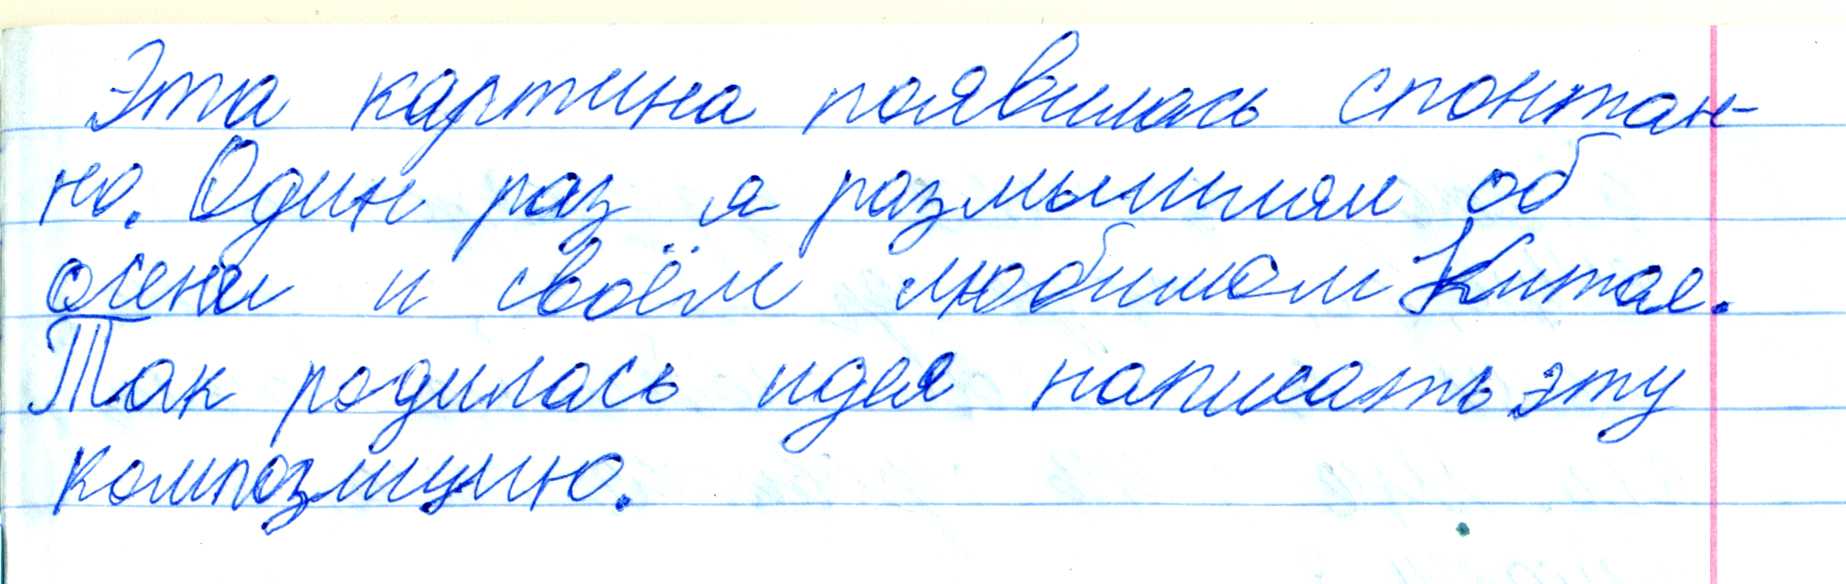 Эта картина появилась спонтан-
но. Один раз я размышлял об
осени и своём любимом Китае.
Так родилась идея написать эту
композицию.